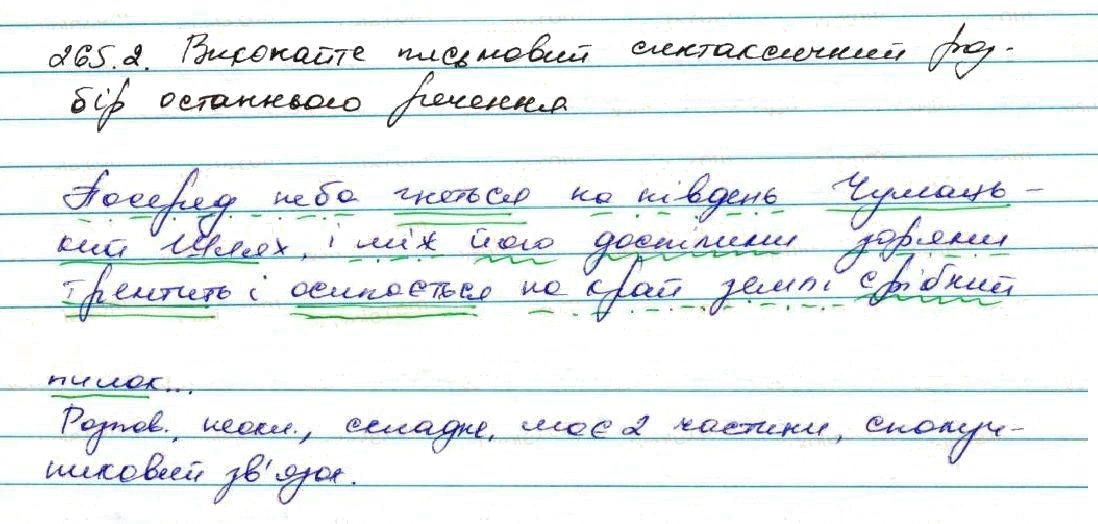 265.2. Виконайте письмовий синтаксичний роз-
бір останнього речення
Посеред неба гнеться на південь Чумаць-
кий Шлях, і між його достиглими зоряни
тремтить і осипається на край землі срібний
пилок...
Розпов., неокл., складне, має 2 частини, сполуч-
никовий зв'язок.